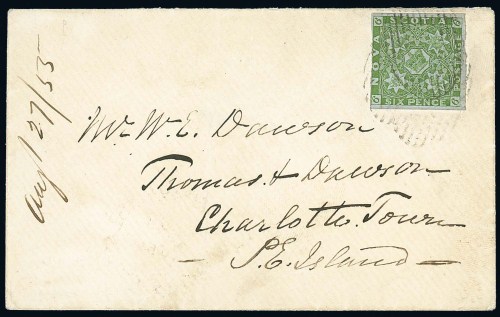 Aug 27/55
NOVA
SCOTIA
SIX PENCE
Mr. W. E. Dawson
Thomas & Dawson
Charlotte Town
— P. E. Island —